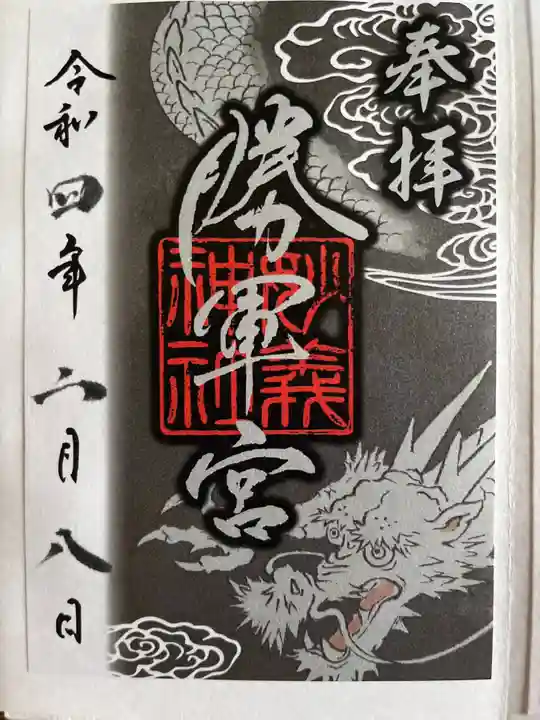 奉拝
勝軍宮
妙義
神社
令和四年 六月八日